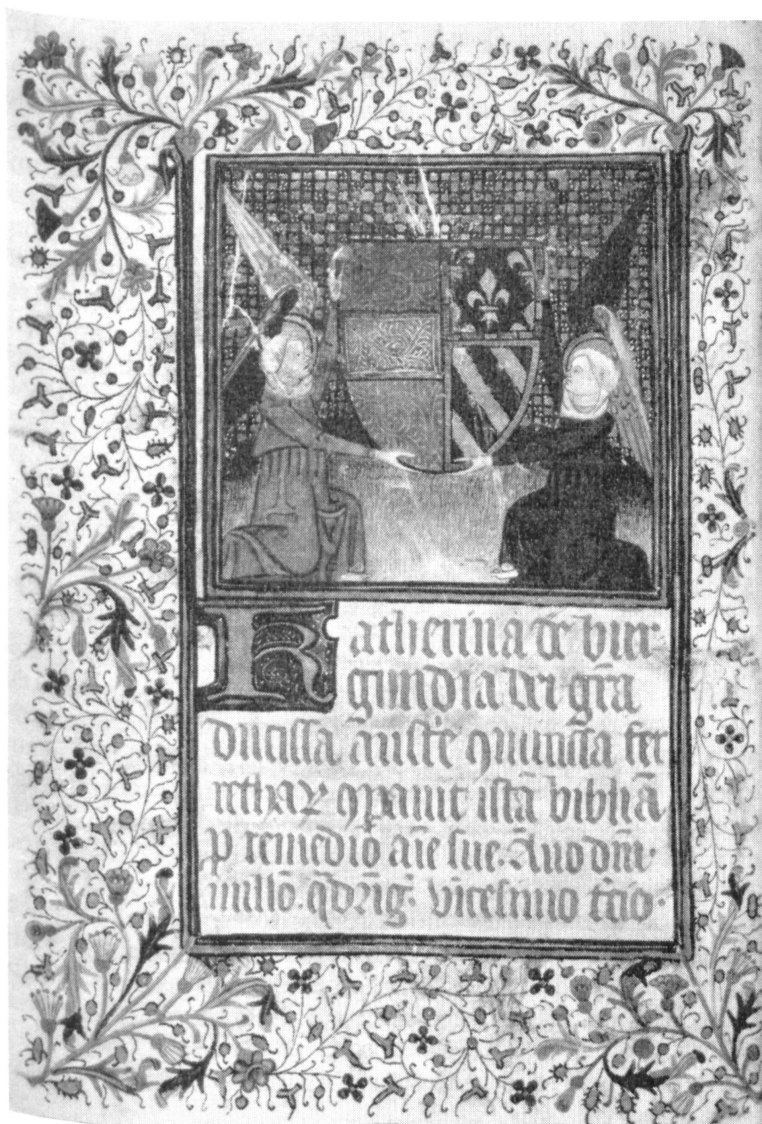 Katherina de bur
gundia dei gr̄a
ducissa austr̄e ꝯmitissa fer
rethaꝝ ꝯpauit istā bibliā
ꝑ remediō aīe sue. Āno dn̄i
millō. q̄drīg. vicesimo t̄cio.